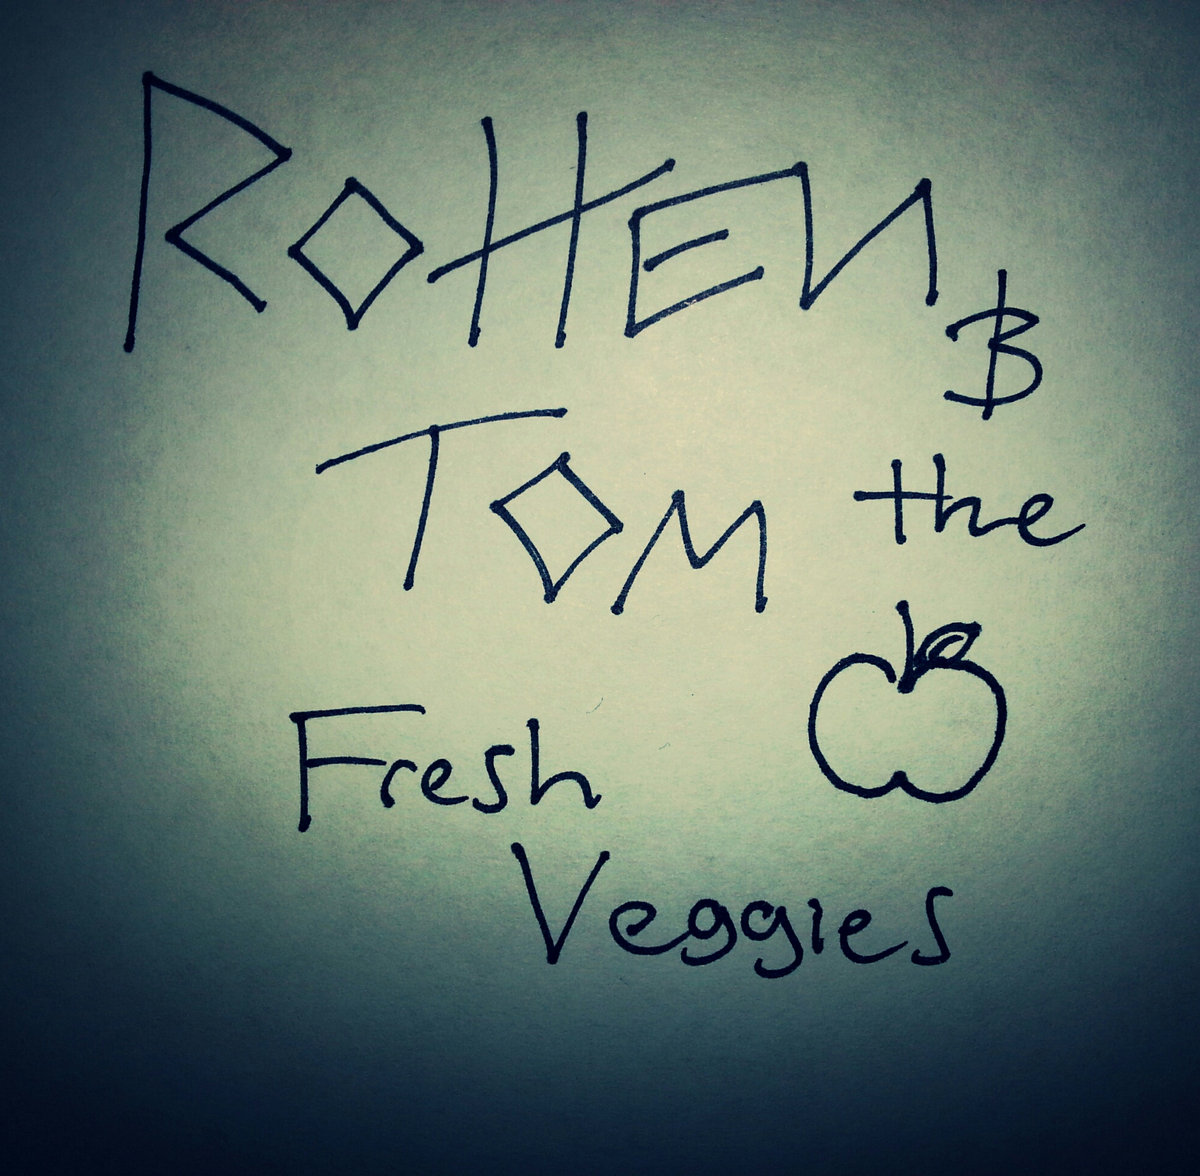 Rotten
Tom & the
Fresh
Veggies